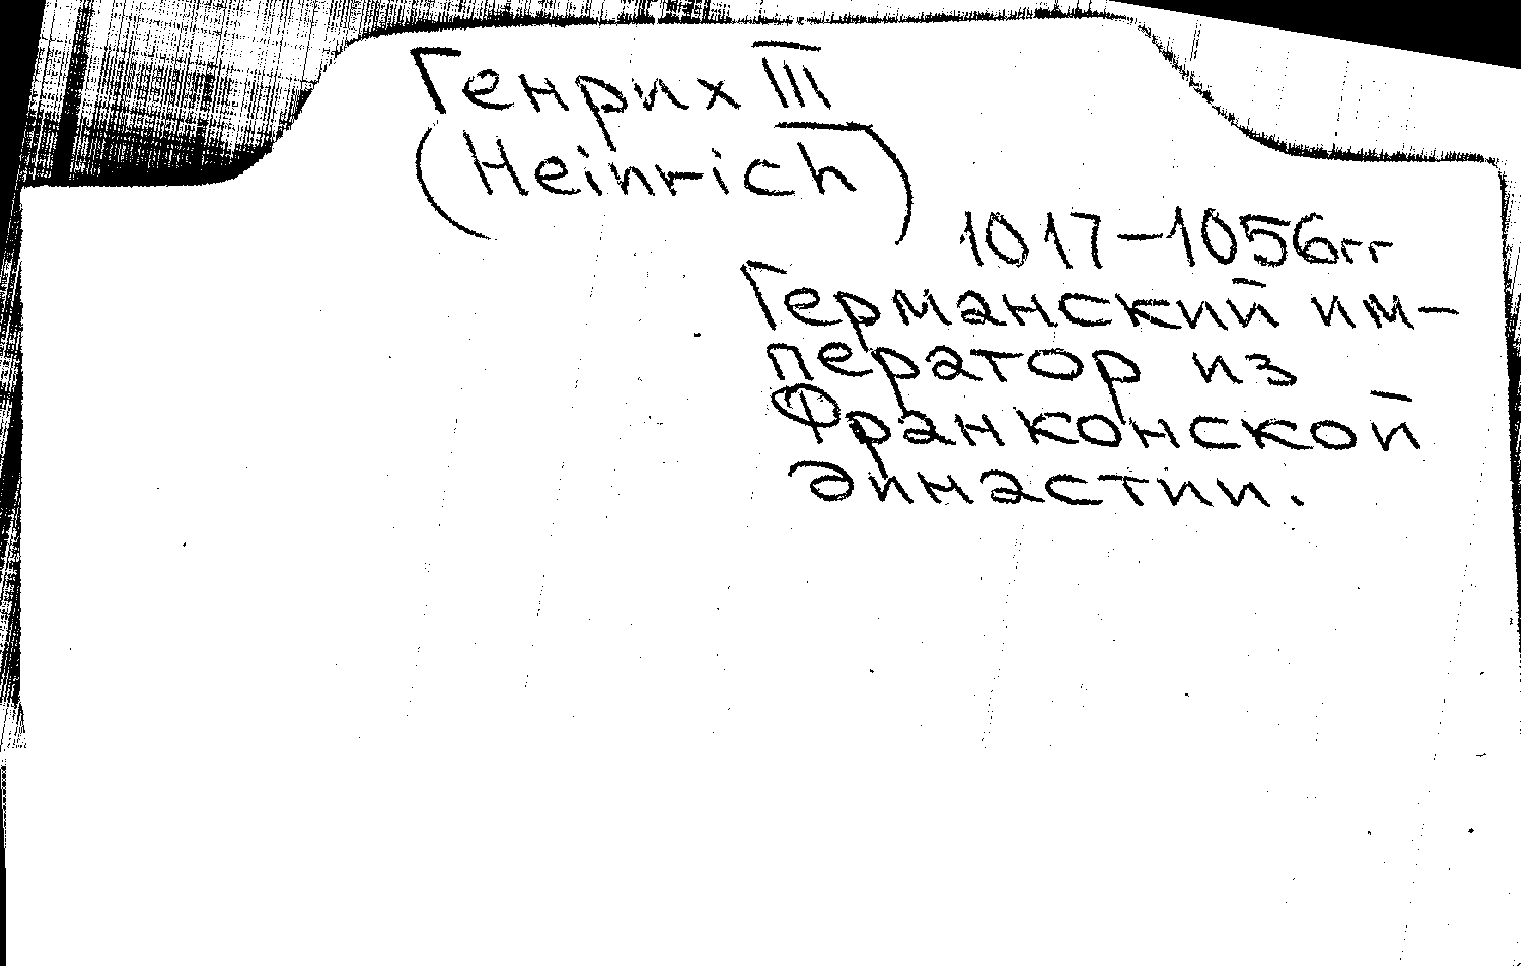 Генрих III
(Heinrich)
1017-1056гг
Германский им-
ператор из
Франконской
династии.